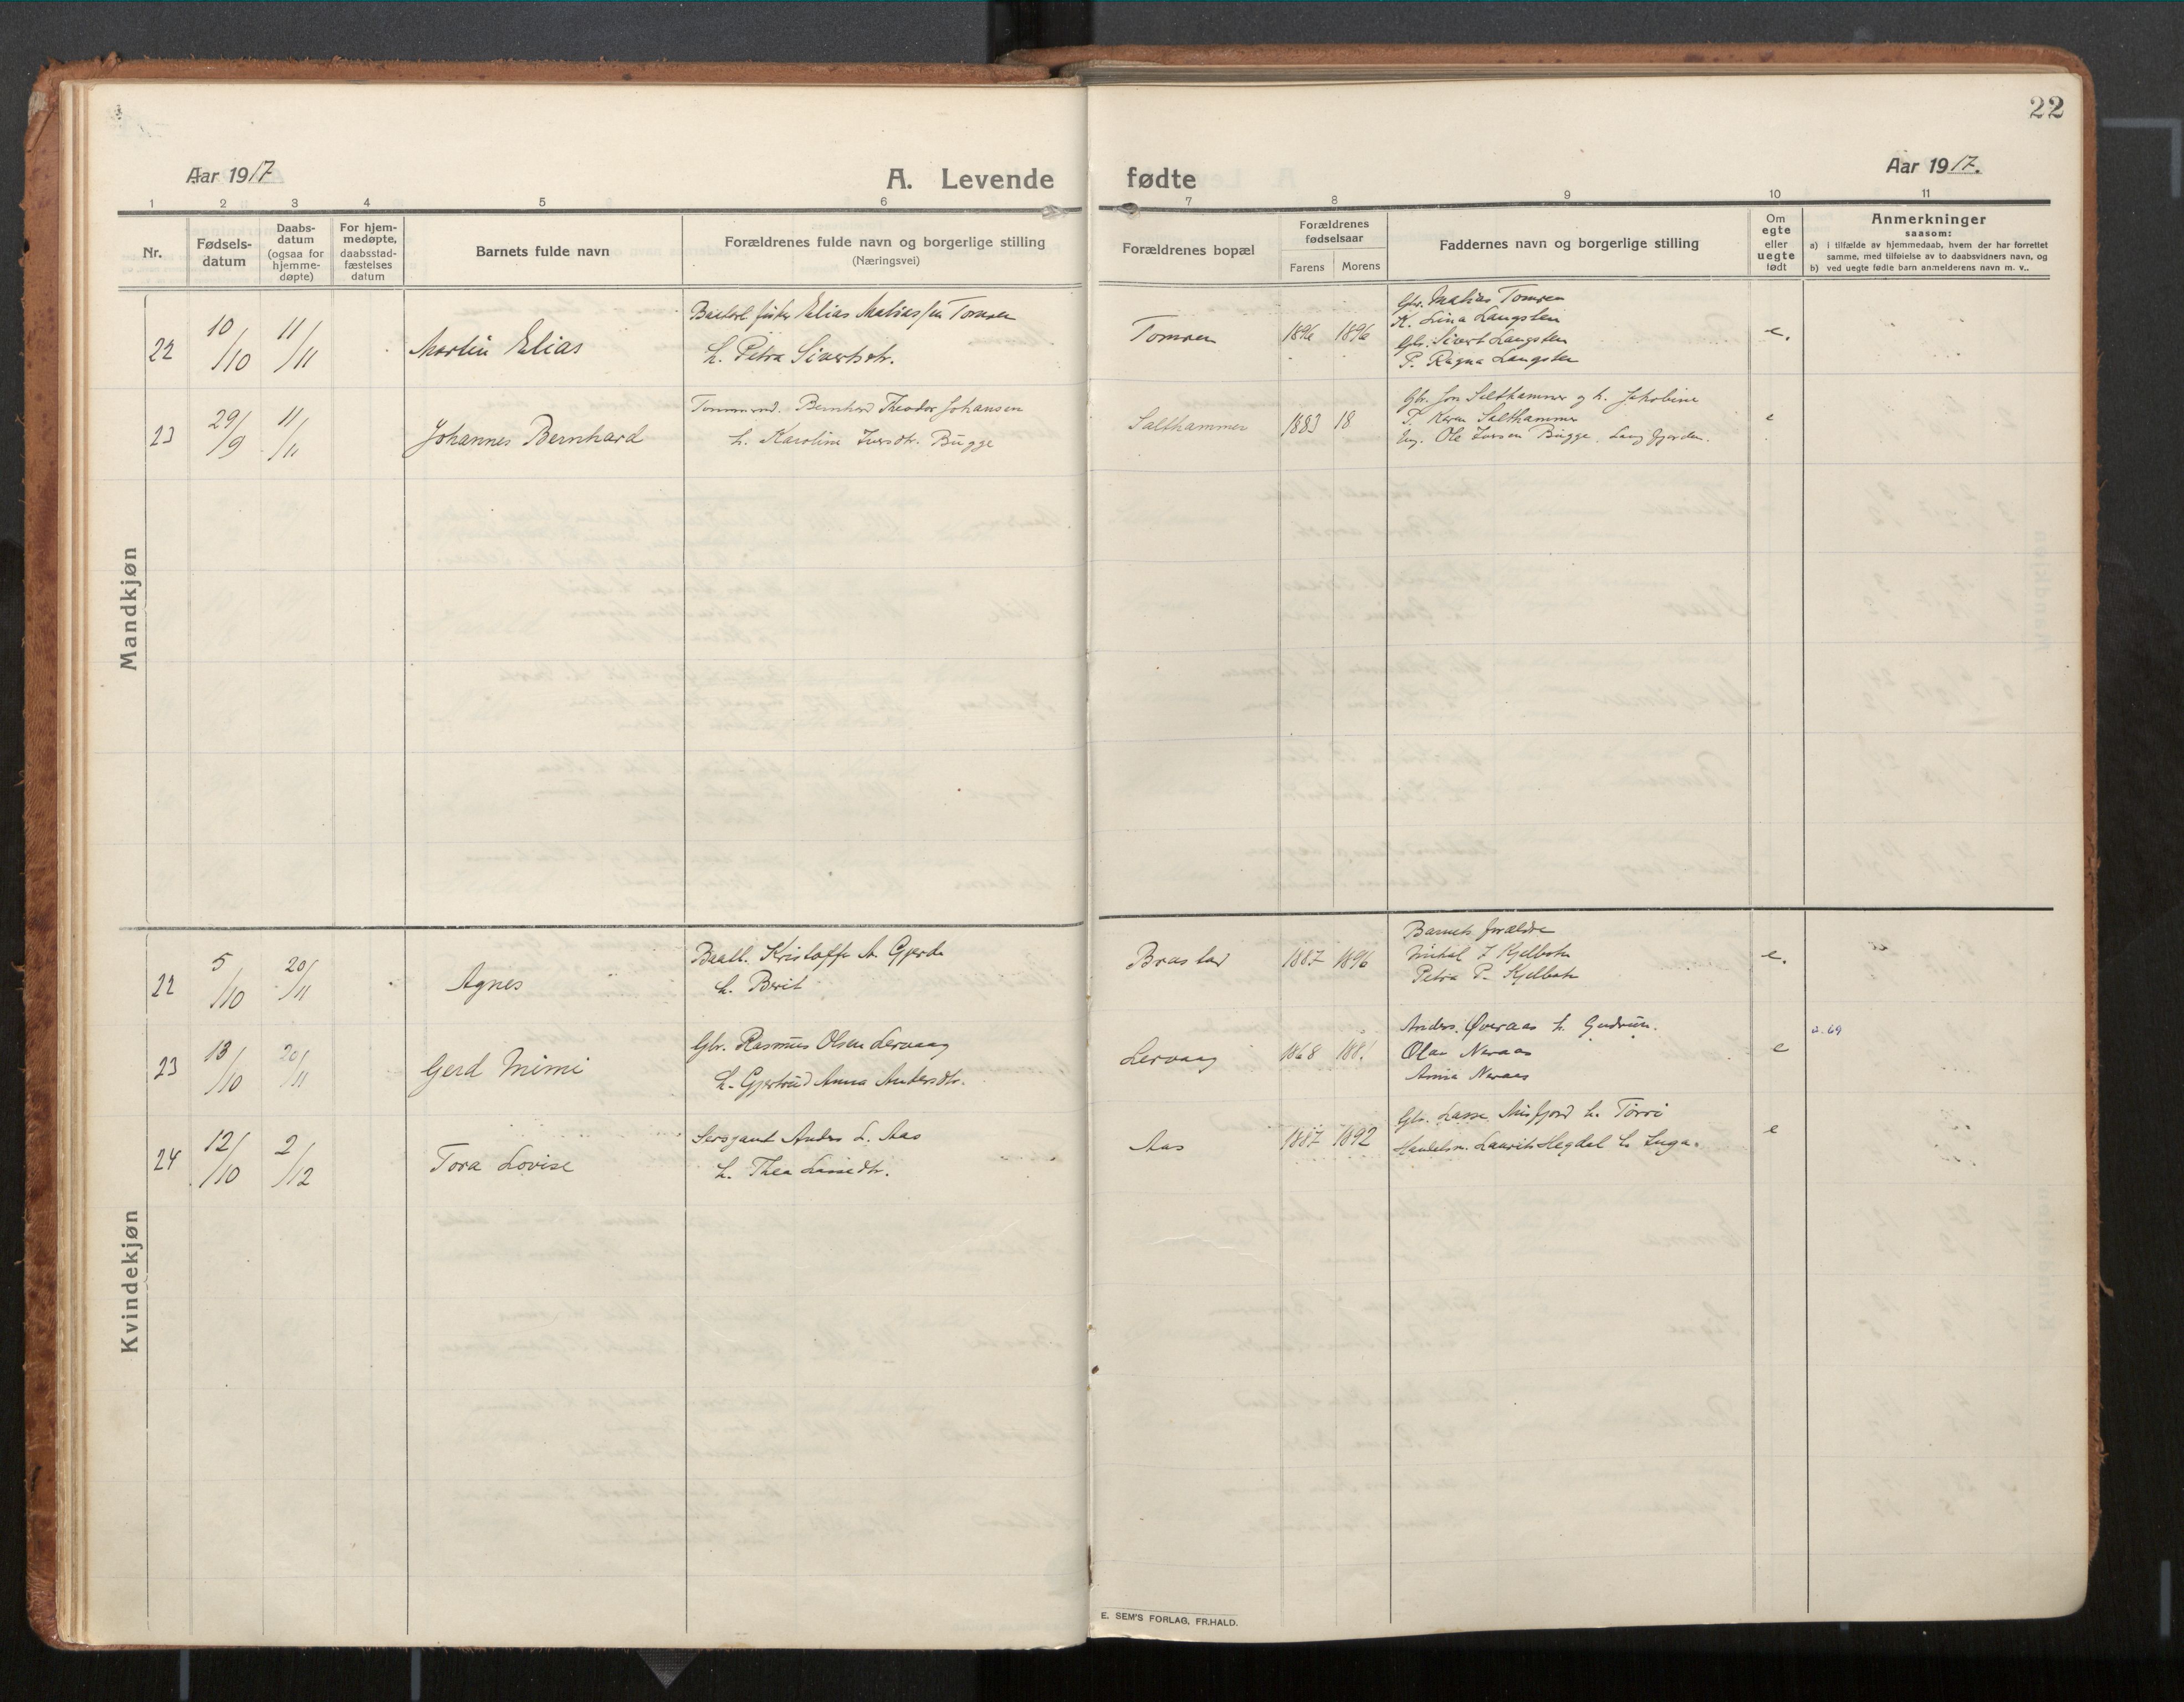 22
Aar 1917
A. Levende
fødte
Aar 1917.
1 2 3 4 5 6 7 8 9 10 11
Nr.
Fødsels-
datum
Daabs-
datum
(ogsaa for
hjemme-
døpte)
For hjem-
medøpte,
daabsstad-
fæstelses
datum
Barnets fulde navn
Forældrenes fulde navn og borgerlige stilling
(Næringsvei)
Forældrenes bopæl
Forældrenes
fødselsaar
Farens Morens
Faddernes navn og borgerlige stilling
Om
egte
eller
uegte
født
Anmerkninger
saasom:
a) i tilfælde av hjemmedaab, hvem der har forrettet
samme, med tilføielse av to daabsvidners navn, og
b) ved uegte fødte barn anmelderens navn m. v..
Mandkjøn
22 10/10 11/11 Martin Elias
fisker Elias Matiassen Tomren
h. Petra Sivertsdtr.
Tomren 1896 1896
Gbr. Matias Tomren
K. Lina Langsten
Gbr. Sivert Langsten
P. Ragna Langsten
e.
23 29/9 11/11 Johannes Bernhard
Tømmermd. Bernhard Theodor Johansen
h. Karoline Iversdtr. Bugge
Salthammer 1883 18
Gbr. Jon Salthammer og h. Jakobine
P. Karen Salthammer
Ung. Ole Iversen Bugge, Langfjorden.
e
Kvindekjøn
22 5/10 20/11 Agnes
Kristoffer A. Gjerde
h. Berit
Brastad 1887 1896
Barnets forældre
Mikal J Kjelbotn
Petra P. Kjelbotn
e.
23 13/10 20/11 Gerd Mimi
Gbr. Rasmus Olsen Lervaag
h. Gjertrud Anna Andersdtr.
Lervaag 1868 1881
Anders Øveraas h. Gudrun.
Olav Neraas
Anna Neraas
e
a. 69
24 12/10 2/12 Tora Lovise
Sersjant Anders L. Aas
h. Thea Lassedtr.
Aas 1887 1892
Gbr. Lasse Misfjord h. Torri
Handelsm. Laurits Hegdal h. Inga.
e
E. SEM'S FORLAG, FR.HALD.